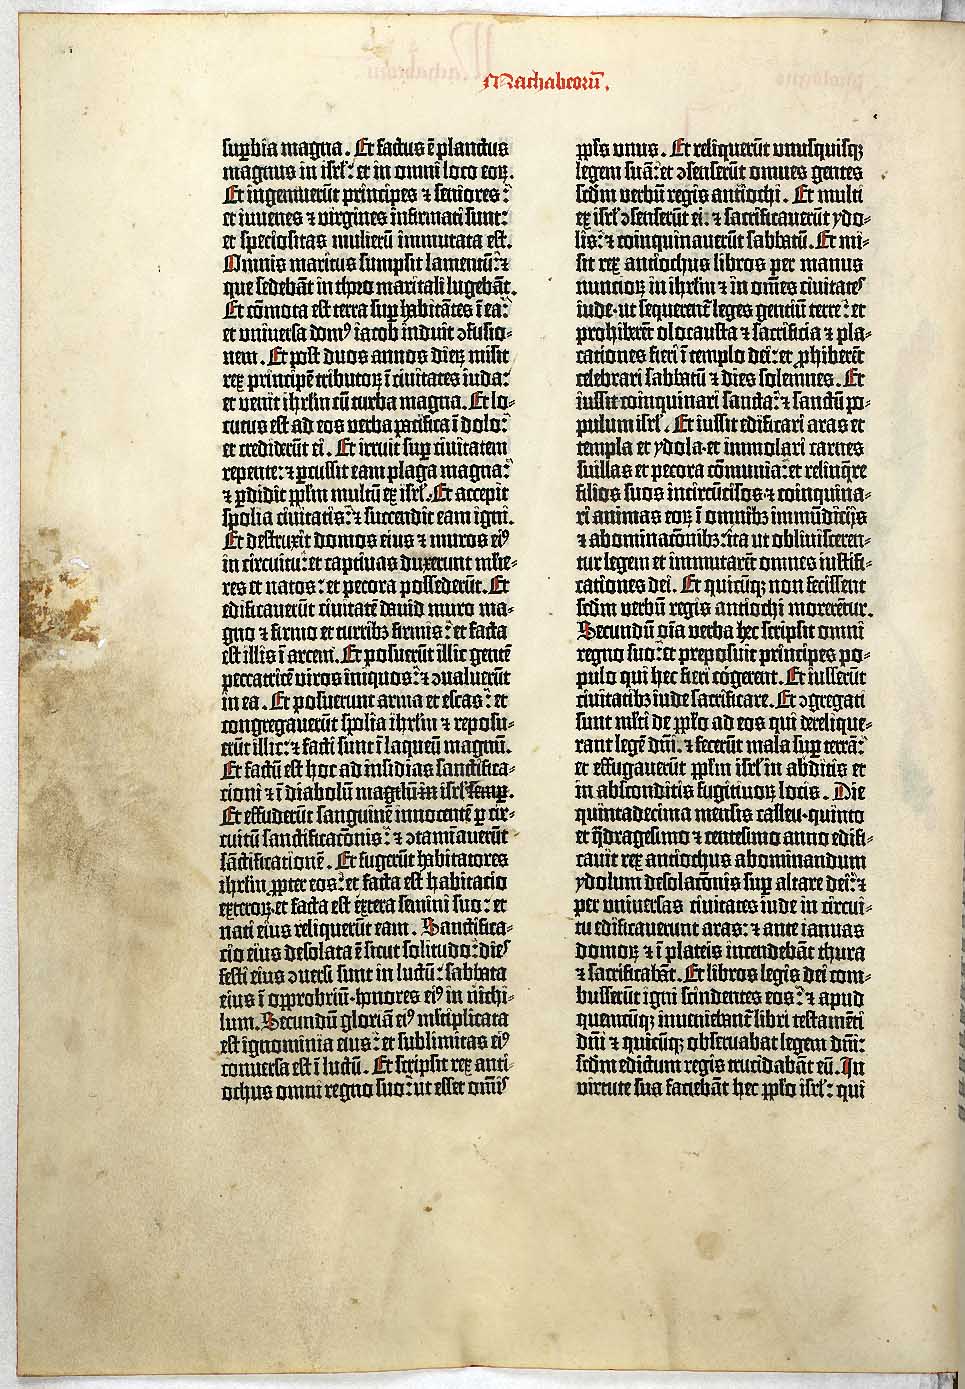 Machabeorū.
suꝑbia magna. Et factus ē planctus
magnus in isrl': et in omni loco eoꝝ.
Et ingemuerūt principes ⁊ seniores:
et iuuenes ⁊ virgines infirmati sunt:
et speciositas mulierū immutata est.
Omnis maritus sumpsit lamentū: ⁊
que sedebāt in thoro maritali lugebāt.
Et cōmota est terra suꝑ habitātes ī ea:
et uniuersa domꝰ iacob induit ↄfusio-
nem. Et post duos annos dieꝝ misit
rex principē tributoꝝ ī ciuitates iuda:
et venit ihrl'm cū turba magna. Et lo-
cutus est ad eos verba pacifica ī dolo:
et crediderūt ei. Et irruit suꝑ ciuitatem
repente: ⁊ ꝑcussit eam plaga magna:
⁊ ꝑdidit ppl'm multū ex isrl'. Et accepit
spolia ciuitatis: ⁊ succendit eam igni.
Et destruxit domos eius ⁊ muros eiꝰ
in circuitu: et captiuas duxerunt mlie-
res et natos: et pecora possederūt. Et
edificauerūt ciuitatē dauid muro ma-
gno ⁊ firmo et turribꝫ firmis: et facta
est illis ī arcem. Et posuerūt illic gentē
peccatricē viros iniquos: ⁊ ↄualuerūt
in ea. Et posuerunt arma et escas: et
congregauerūt spolia ihrl'm ⁊ reposu-
erūt illic: ⁊ facti sunt ī laqueū magnū.
Et factū est hoc ad insidias sanctifica-
cioni ⁊ ī diabolū magnū in isrl' semꝑ.
Et effuderūt sanguinē innocentē ꝑ cir-
cuitū sanctificacōnis: ⁊ ↄtamīauerūt
sāctificationē. Et fugerūt habitatores
ihrl'm ꝓpter eos: et facta est habitacio
exteroꝝ. et facta est extera semini suo: et
nati eius reliquerūt eam. Sanctifica-
cio eius desolata ē sicut solitudo: dies
festi eius ↄuersi sunt in luctū: sabbata
eius ī opprobriū. honores eiꝰ in nichi-
lum. Secundū gloriā eiꝰ mltiplicata
est ignominia eius: et sublimitas eiꝰ
conuersa est ī luctū. Et scripsit rex anti-
ochus omni regno suo: ut esset om̄is
ppl's unus. Et reliquerūt unusquisqꝫ
legem suā: et ↄsenserūt omnes gentes
scdm verbū regis antiochi. Et multi
ex isrl' ↄsenserūt ei. ⁊ sacrificauerūt ydo-
lis: ⁊ coinquinauerūt sabbatū. Et mi-
sit rex antiochus libros per manus
nuncioꝝ in ihrl'm ⁊ in om̄es ciuitates
iude. ut sequerentˀ leges gentiū terre: et
prohiberēt olocausta ⁊ sacrificia ⁊ pla-
cationes fieri ī templo dei: et ꝓhiberēt
celebrari sabbatū ⁊ dies solemnes. Et
iussit coinquinari sancta: ⁊ sanctū po-
pulum isrl'. Et iussit edificari aras et
templa et ydola. et immolari carnes
suillas et pecora cōmunia: et relinqͥre
filios suos incircūcisos. ⁊ coinquina-
ri animas eoꝝ ī omnibꝫ immūdicijs
⁊ abominacōnibꝫ: ita ut obliuisceren-
tur legem et immutarēt omnes iustifi-
cationes dei. Et quicūqꝫ non fecissent
scdm verbū regis antiochi morerētur.
Secundū oīa verba hec scripsit omni
regno suo: et preposuit principes po-
pulo qui hec fieri cōgerent. Et iusserūt
ciuitatibꝫ iude sacrificare. Et ↄgregati
sunt ml'ti de ppl'o ad eos qui derelique-
rant legē dn̄i. ⁊ fecerūt mala suꝑ terrā:
et effugauerūt ppl'm isrl' in abditis et
in absconditis fugitiuoꝝ locis. Die
quintadecima mensis casleu. quinto
et qͣdragesimo ⁊ centesimo anno edifi-
cauit rex antiochus abominandum
ydolum desolacōnis suꝑ altare dei: ⁊
per uniuersas ciuitates iude in circui-
tu edificauerunt aras: ⁊ ante ianuas
domoꝝ ⁊ ī plateis incendebāt thura
⁊ sacrificabāt. Et libros legis dei com-
busserūt igni scindentes eos: ⁊ apud
quencūqꝫ inueniebantˀ libri testamēti
dn̄i ⁊ quicūqꝫ obseruabat legem dn̄i:
scdm edictum regis trucidabāt eū. In
virtute sua faciebāt hec ppl'o isrl': qui